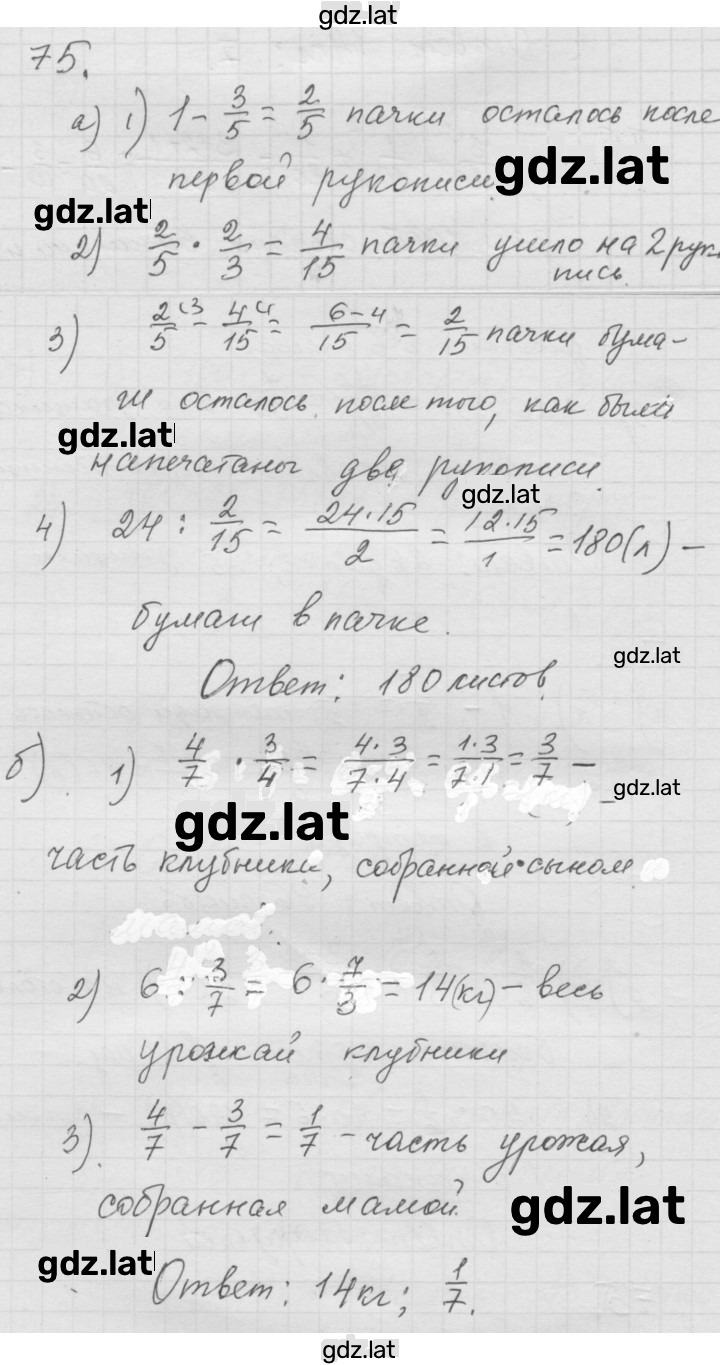 gdz.lat
75.
а) 1) 1 - 3/5 = 2/5 пачки осталось после
первой рукописи.
gdz.lat
gdz.lat
2) 2/5 · 2/3 = 4/15 пачки ушло на 2 рук
пись.
3) 2/5 (3 - 4/15 (1 = 6-4/15 = 2/15 пачки бума-
ги осталось после того, как были
gdz.lat
напечатаны две рукописи.
gdz.lat
4) 24 : 2/15 = 24·15/2 = 12·15/1 = 180(л) -
бумаги в пачке.
gdz.lat
Ответ: 180 листов.
б) 1) 4/7 · 3/4 = 4·3/7·4 = 1·3/7·1 = 3/7 -
gdz.lat
gdz.lat
часть клубники, собранной сыном
2) 6 : 3/7 = 6 · 7/3 = 14(кг) - весь
урожай клубники
3) 4/7 - 3/7 = 1/7 - часть урожая,
собранная мамой.
gdz.lat
gdz.lat
Ответ: 14кг; 1/7.
gdz.lat